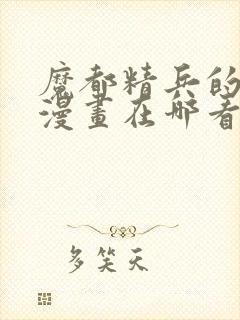 魔都精兵的
漫畫在哪看
多笑天